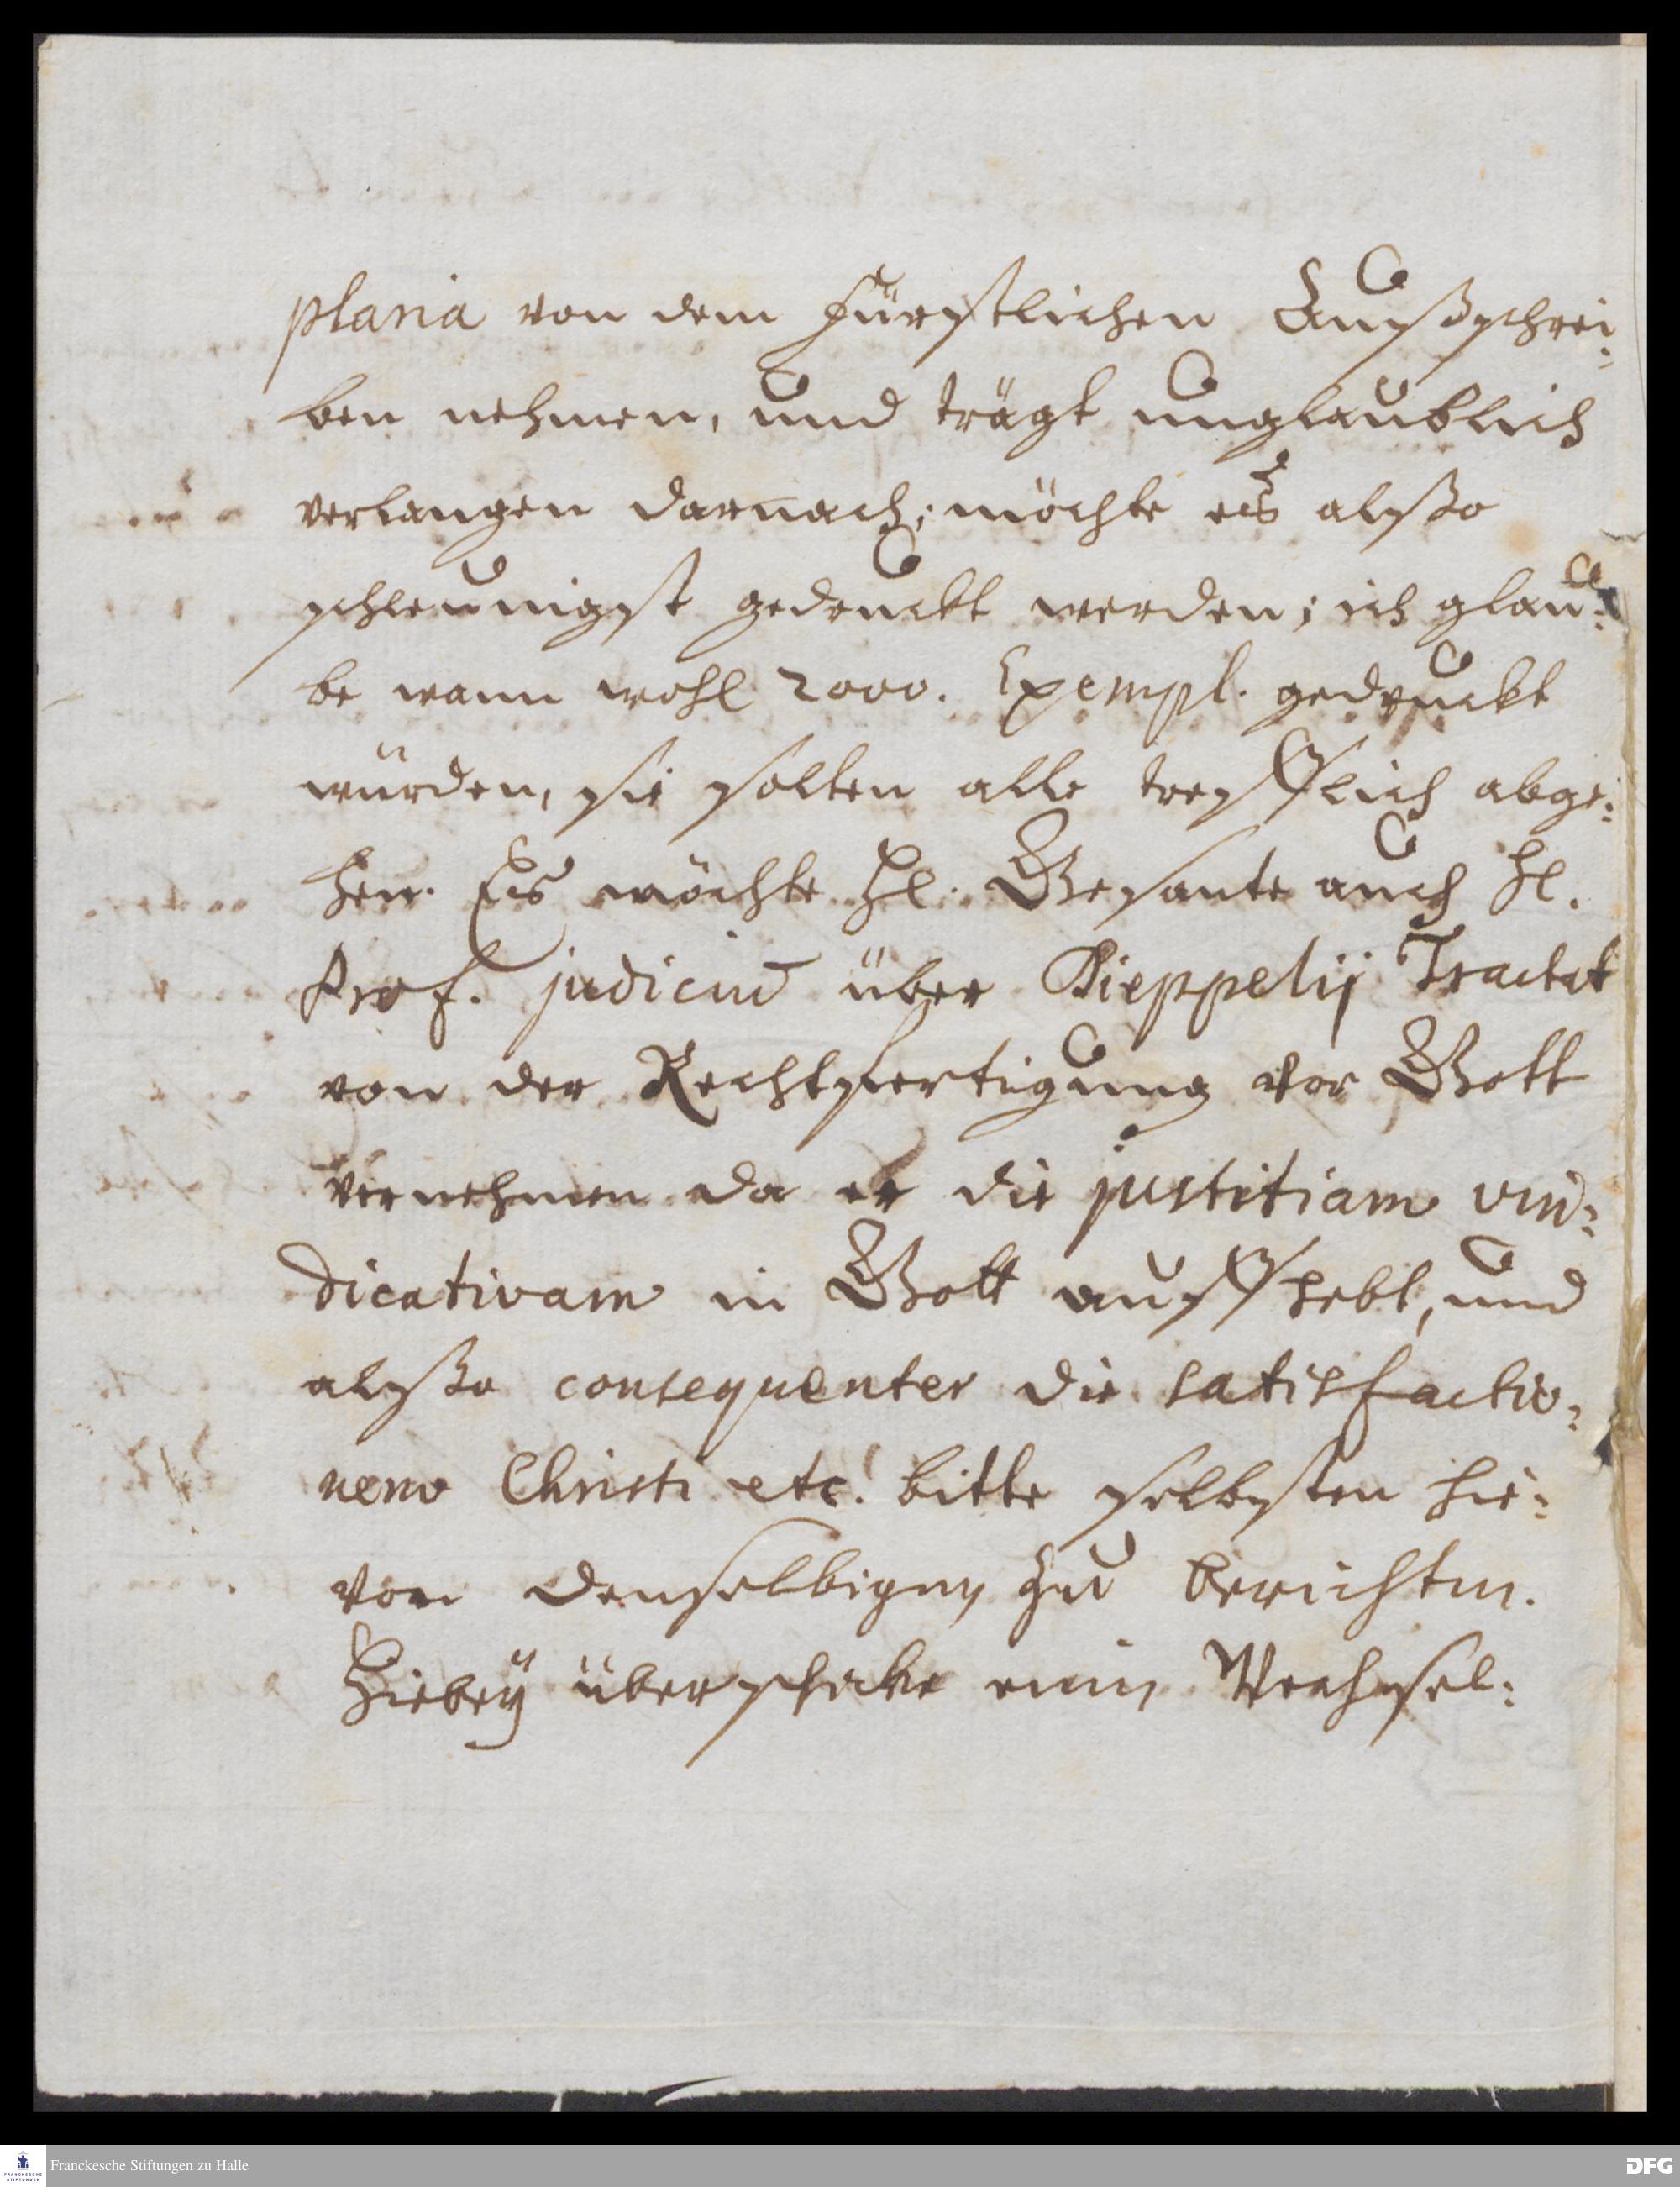 plaria von dem Fürstlichen Außschrei:
ben nehmen, und trägt unglaublich
verlangen darnach; möchte es alßo
schleunigst gedruckt werden; ich glau:
be wann wohl 2000. Exempl. gedruckt
würden, sie solten alle trefflich abge:
hen. Es möchte Hl. Gesante auch Hl.
Prof. judiciũ über Dieppelij Tractat
von der Rechtfertigung vor Gott
vernehmen da er die justitiam vin:
dicativam in Gott auffhebt, und
alßo consequenter die satisfactio:
nem Christi etc. bitte selbsten hie:
von denselbigen zu berichten.
Hiebey überschicke einen Wechsel:
Franckesche Stiftungen zu Halle
DFG